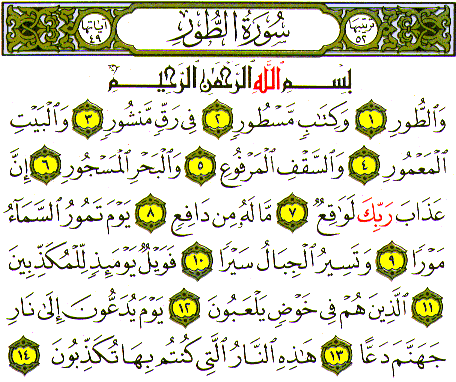 ترتيبها ٥٢ سُورَةُ الطُّورِ آياتها ٤٩
بِسْمِ ٱللَّهِ ٱلرَّحْمَٰنِ ٱلرَّحِيمِ
وَٱلطُّورِ ١ وَكِتَٰبٍ مَّسْطُورٍ ٢ فِى رَقٍّ مَّنشُورٍ ٣ وَٱلْبَيْتِ
ٱلْمَعْمُورِ ٤ وَٱلسَّقْفِ ٱلْمَرْفُوعِ ٥ وَٱلْبَحْرِ ٱلْمَسْجُورِ ٦ إِنَّ
عَذَابَ رَبِّكَ لَوَٰقِعٌ ٧ مَّا لَهُۥ مِن دَافِعٍ ٨ يَوْمَ تَمُورُ ٱلسَّمَآءُ
مَوْرًا ٩ وَتَسِيرُ ٱلْجِبَالُ سَيْرًا ١٠ فَوَيْلٌ يَوْمَئِذٍ لِّلْمُكَذِّبِينَ
١١ ٱلَّذِينَ هُمْ فِى خَوْضٍ يَلْعَبُونَ ١٢ يَوْمَ يُدَعُّونَ إِلَىٰ نَارِ
جَهَنَّمَ دَعًّا ١٣ هَٰذِهِ ٱلنَّارُ ٱلَّتِى كُنتُم بِهَا تُكَذِّبُونَ ١٤